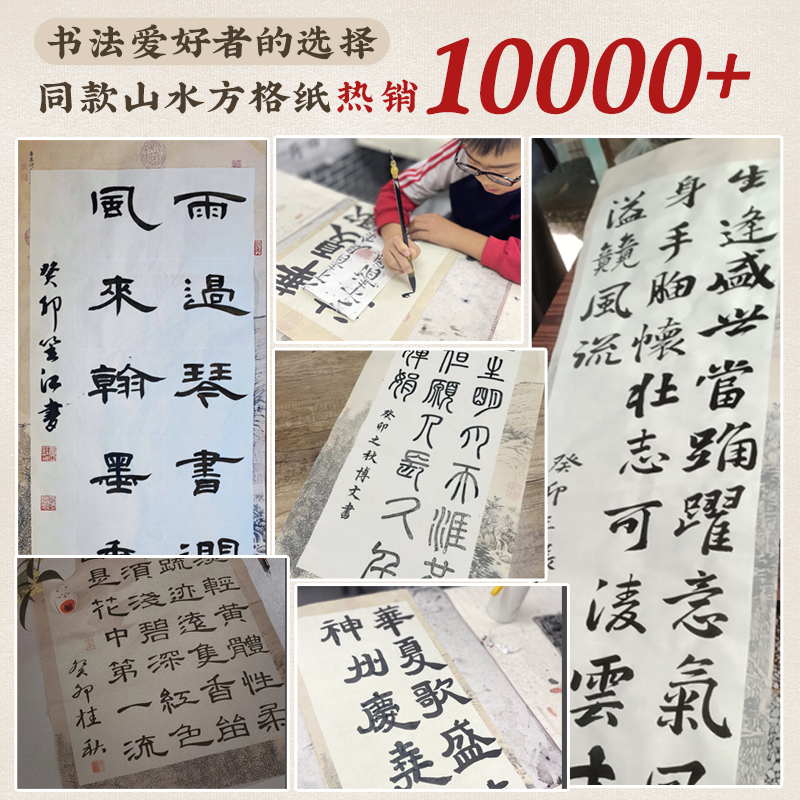 书法爱好者的选择
同款山水方格纸热销10000+
雨過琴書潤
風來翰墨香
癸卯
江書
華夏
明月
但願人長久
嬋娟
癸卯之秋博文書
生逢盛世當踊躍意氣風
身手胸懷壯志可凌雲
溢贛風流
癸卯
輕黃體性柔
疏迹遠隻香
須淺碧深紅色
是花中第一流
癸卯桂秋
華夏歌盛
神州慶堯